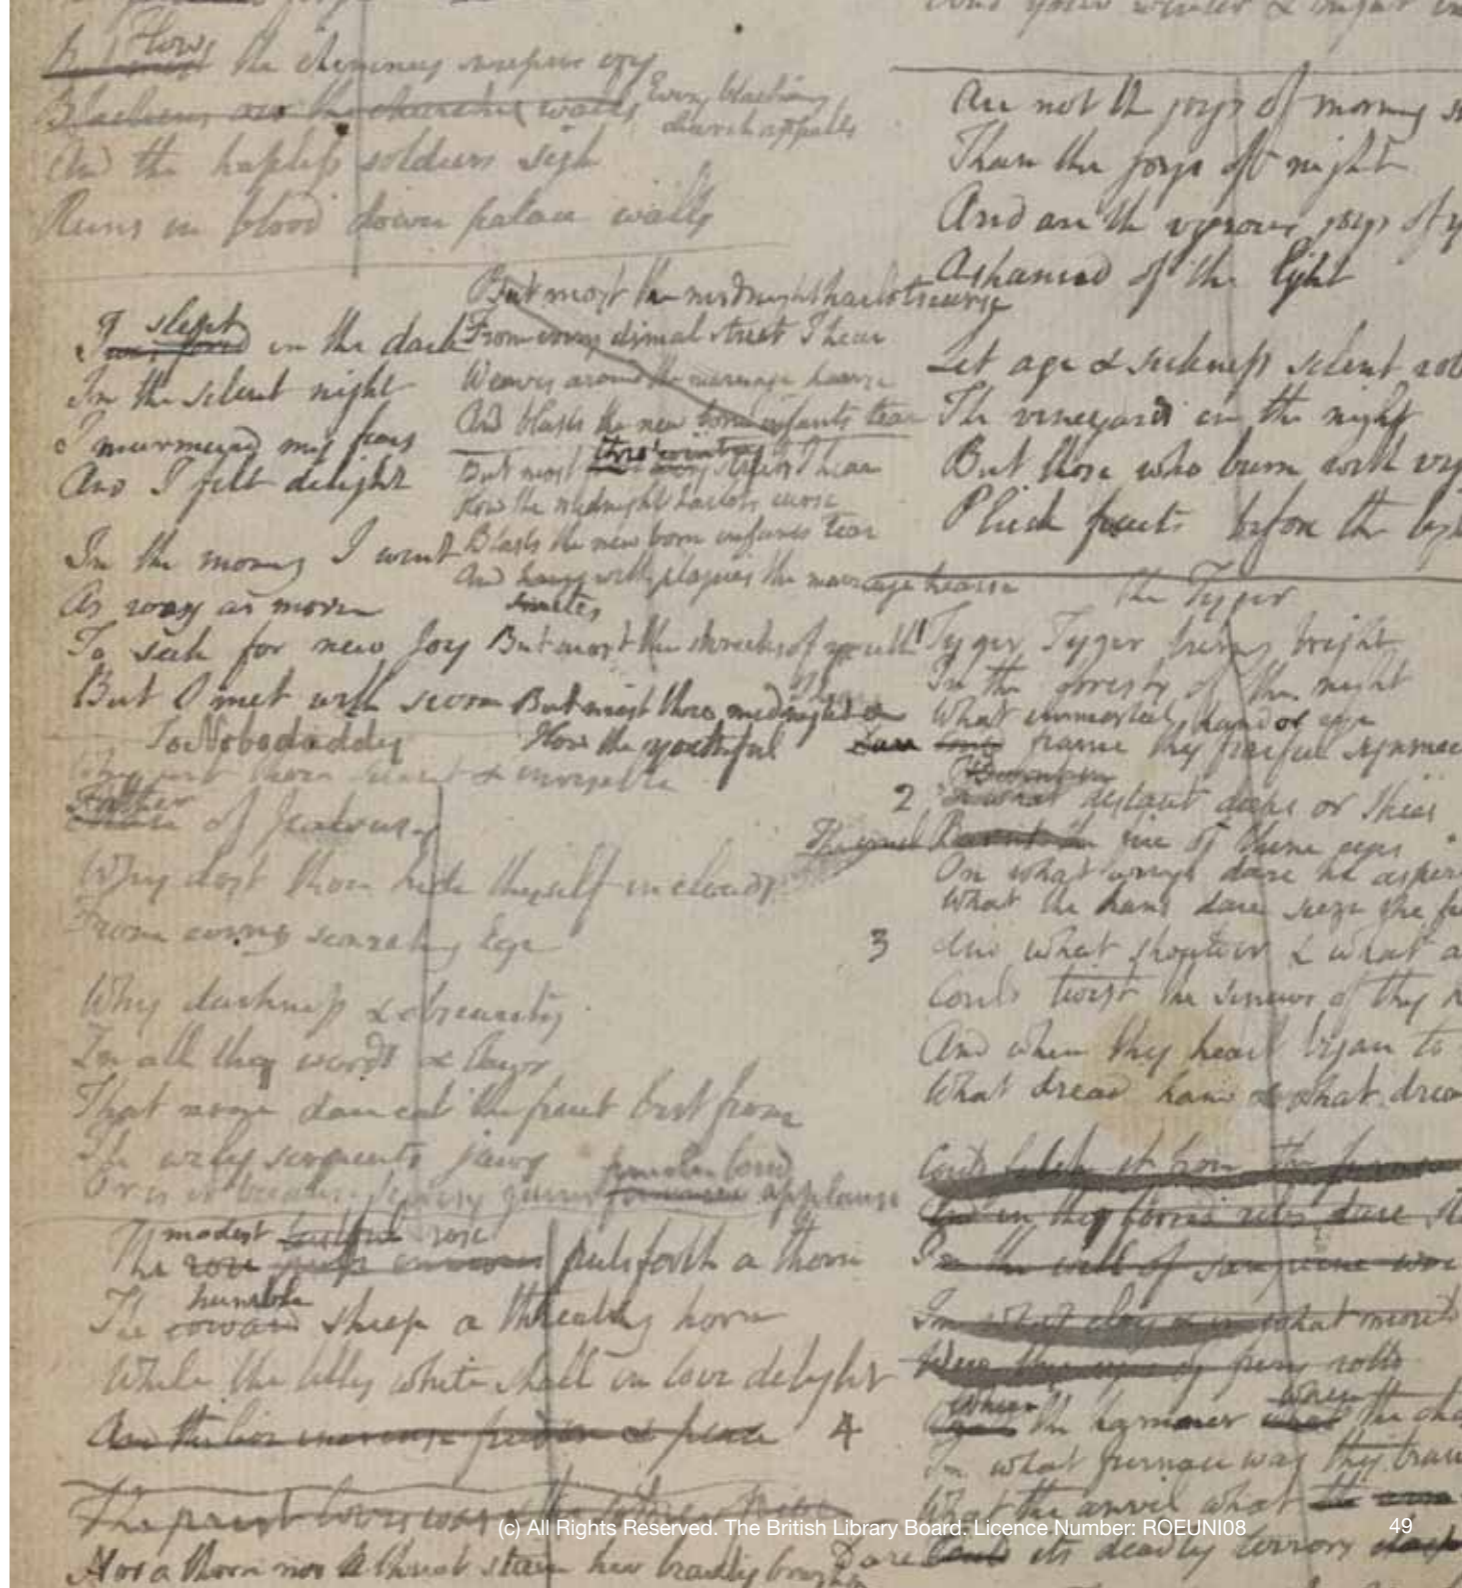 How the chimney sweepers cry
Blackens oer the churches walls
Every blackning
church appalls
And the hapless soldiers sigh
Runs in blood down palace walls
But most the midnight harlots curse
From every dismal street I hear
Weaves around the marriage hearse
And blasts the new born infants tear
But most thro wintry streets I hear
How the midnight harlots curse
Blasts the new born infants tear
And hangs with plagues the marriage hearse
smites
But most the shrieks of youth
But most thro midnight &
How the youthful
I slept in the dark
In the silent night
I murmured my fears
And I felt delight
In the morning I went
As rosy as morn
To seek for new Joy
But I met with scorn
To Nobodaddy
Why art thou silent & invisible
Father of Jealousy
Why dost thou hide thyself in clouds
From every searching Eye
Why darkness & obscurity
In all thy words & laws
That none dare eat the fruit but from
The wily serpents jaws
Or is it because Secresy gains females loud applause
modest lustful rose
The rose puts envious puts forth a thorn
humble
The coward sheep a threatning horn
While the lilly white shall in love delight
And the lion increase freedom & peace
The priest loves war
Nor a thorn nor a threat stain her beauty bright
Are not the joys of morning
Than the joys of night
And are the vigrous joys of
Ashamed of the light
Let age & sickness silent rob
The vineyards in the night
But those who burn with
Pluck fruits before the
The Tyger
1 Tyger Tyger burning bright
In the forests of the night
What immortal hand or eye
Dare frame thy fearful
Burnt in
2 In what distant deeps or skies
The cruel Burnt the fire of thine eyes
On what wings dare he
What the hand dare seize the
3 And what shoulder & what
Could twist the sinews of thy
And when thy heart began to
What dread hand & what
Could fetch it from the furnace
And in thy horrid ribs dare
In the well of sanguine woe
In what clay & in what mould
Were thy eyes of fury rolld
Where where
4 the hammer what the
In what furnace was thy
What the anvil what the
Dare Could its deadly terrors clasp
(c) All Rights Reserved. The British Library Board. Licence Number: ROEUNI08
49